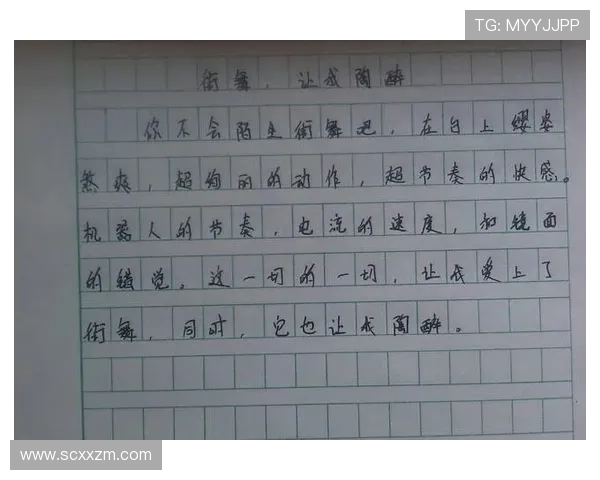 TG: MYYJJPP
街舞，让我陶醉
你不会陌生街舞吧，在台上缨姿
煞爽，超绚丽的动作，超节奏的快感。
机器人的节奏，电流的速度，和镜面
的错觉。这一切的一切，让我爱上了
街舞，同时，它也让我陶醉。
www.scxxzm.com